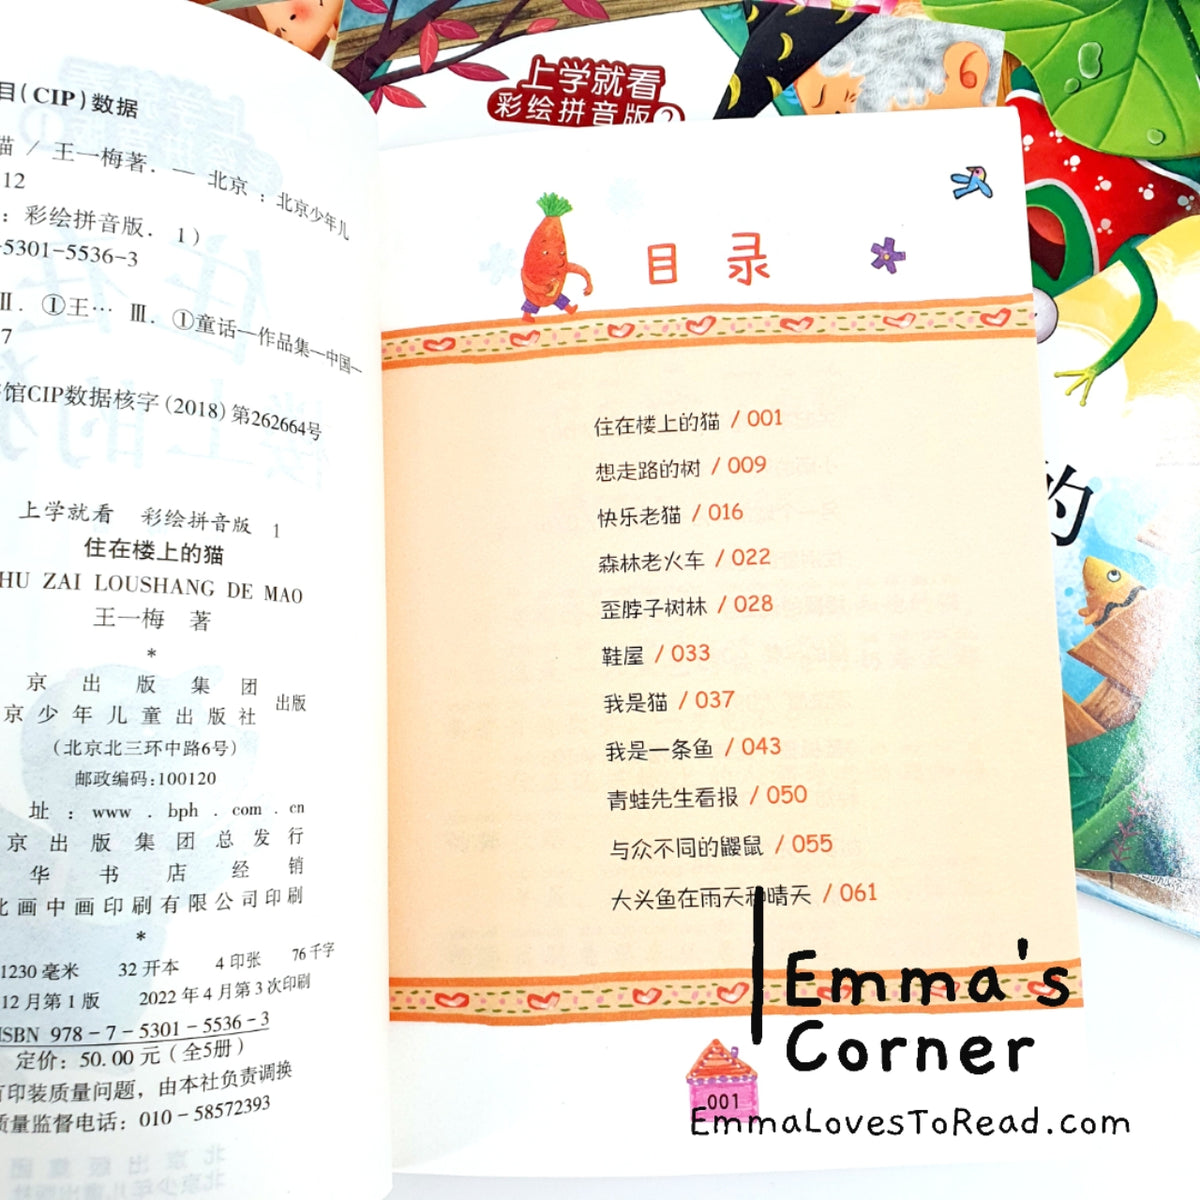 上学就看
彩绘拼音版
目(CIP)数据
猫 / 王一梅著. — 北京 : 北京少年儿
12
: 彩绘拼音版. 1)
-5301-5536-3
Ⅱ. ①王… Ⅲ. ①童话—作品集—中国—
7
馆CIP数据核字(2018)第262664号
上学就看 彩绘拼音版 1
住在楼上的猫
HU ZAI LOUSHANG DE MAO
王一梅 著
*
京出版集团
京少年儿童出版社
出版
(北京北三环中路6号)
邮政编码:100120
址:www.bph.com.cn
京出版集团总发行
华书店经销
北画中画印刷有限公司印刷
*
1230毫米 32开本 4印张 76千字
12月第1版 2022年4月第3次印刷
ISBN 978-7-5301-5536-3
定价: 50.00元(全5册)
有印装质量问题, 由本社负责调换
质量监督电话: 010-58572393
目录
住在楼上的猫 / 001
想走路的树 / 009
快乐老猫 / 016
森林老火车 / 022
歪脖子树林 / 028
鞋屋 / 033
我是猫 / 037
我是一条鱼 / 043
青蛙先生看报 / 050
与众不同的鼹鼠 / 055
大头鱼在雨天和晴天 / 061
001
的
Emma's
Corner
EmmaLovesToRead.com